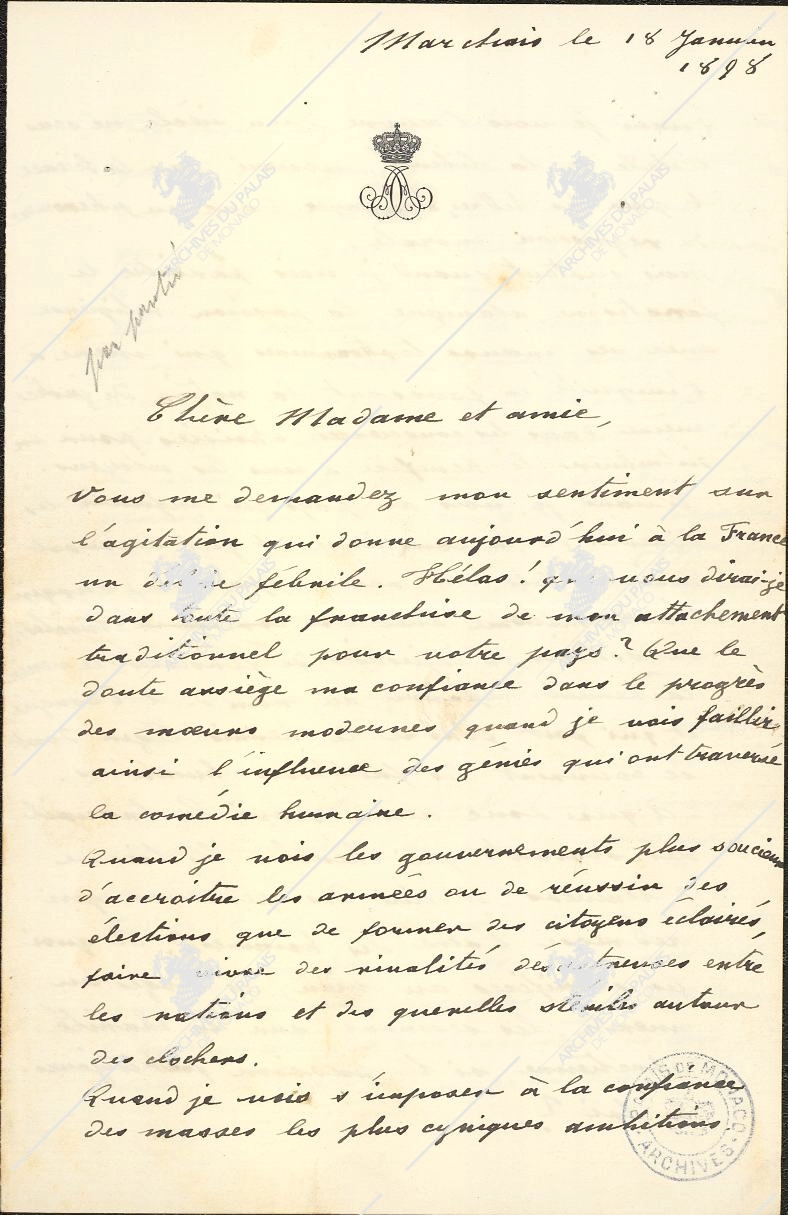 Marchais le 18 Janvier
1898
Chère Madame et amie,
Vous me demandez mon sentiment sur
l'agitation qui donne aujourd'hui à la France
un délire fébrile. Hélas! que vous dirai-je
dans toute la franchise de mon attachement
traditionnel pour votre pays? Que le
doute assiège ma confiance dans le progrès
des mœurs modernes quand je vois faillir
ainsi l'influence des génies qui ont traversé
la comédie humaine.
Quand je vois les gouvernements plus soucieux
d'accroître les armées ou de réussir des
élections que de former des citoyens éclairés,
faire vivre des rivalités désastreuses entre
les nations et des querelles stériles autour
des clochers.
Quand je vois s'imposer à la confiance
des masses les plus cyniques ambitions
ARCHIVES DU PALAIS
DE MONACO
ARCHIVES DU PALAIS
DE MONACO
ARCHIVES DU PALAIS
DE MONACO
ARCHIVES DU PALAIS
DE MONACO
ARCHIVES DU PALAIS
DE MONACO
ARCHIVES DU PALAIS
DE MONACO
PALAIS DE MONACO
ARCHIVES